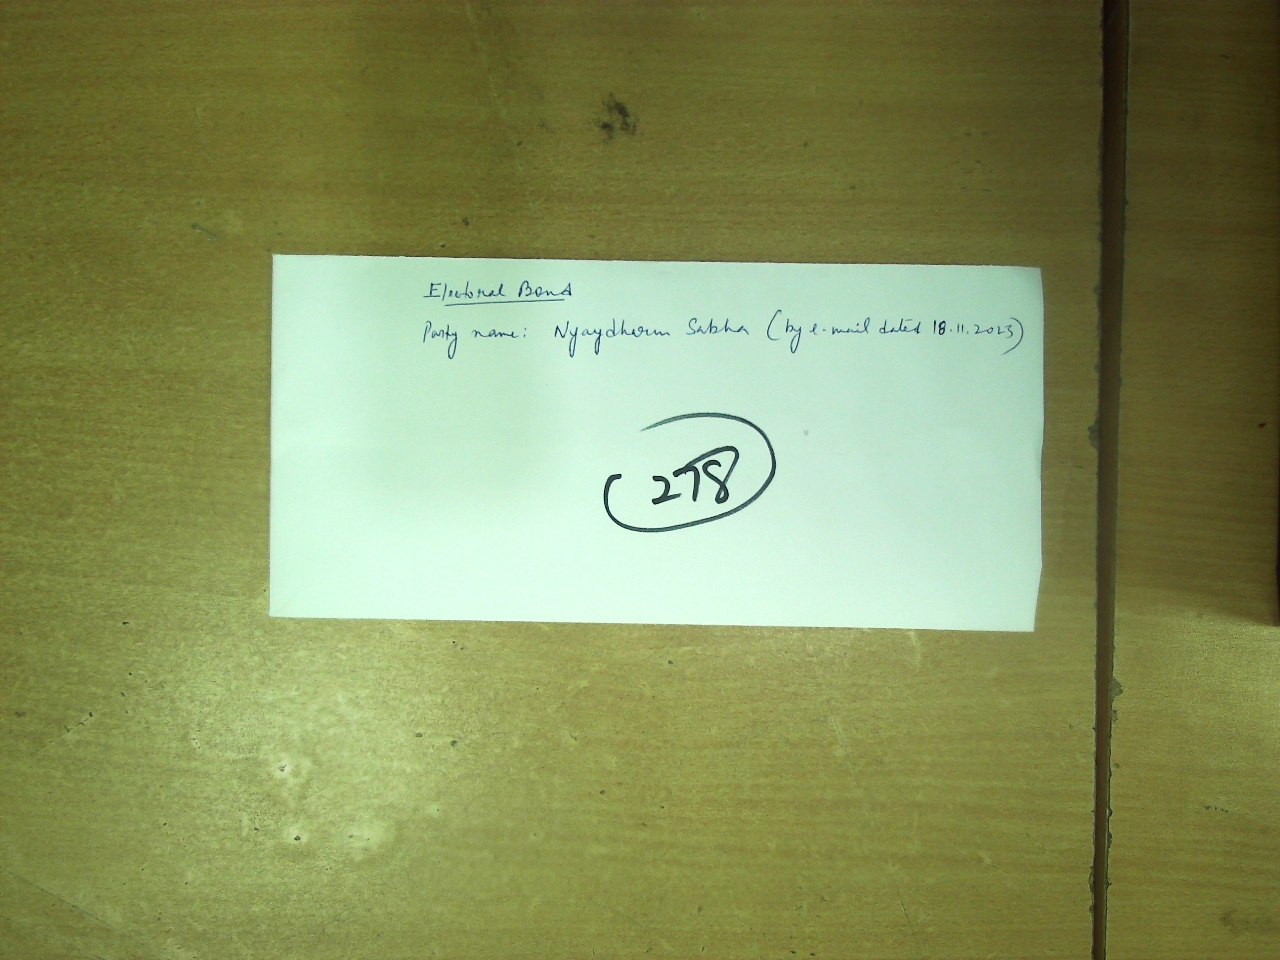 Electoral Bond
Party name: Nyaydharm Sabha (by e-mail dated 18.11.2023)
278